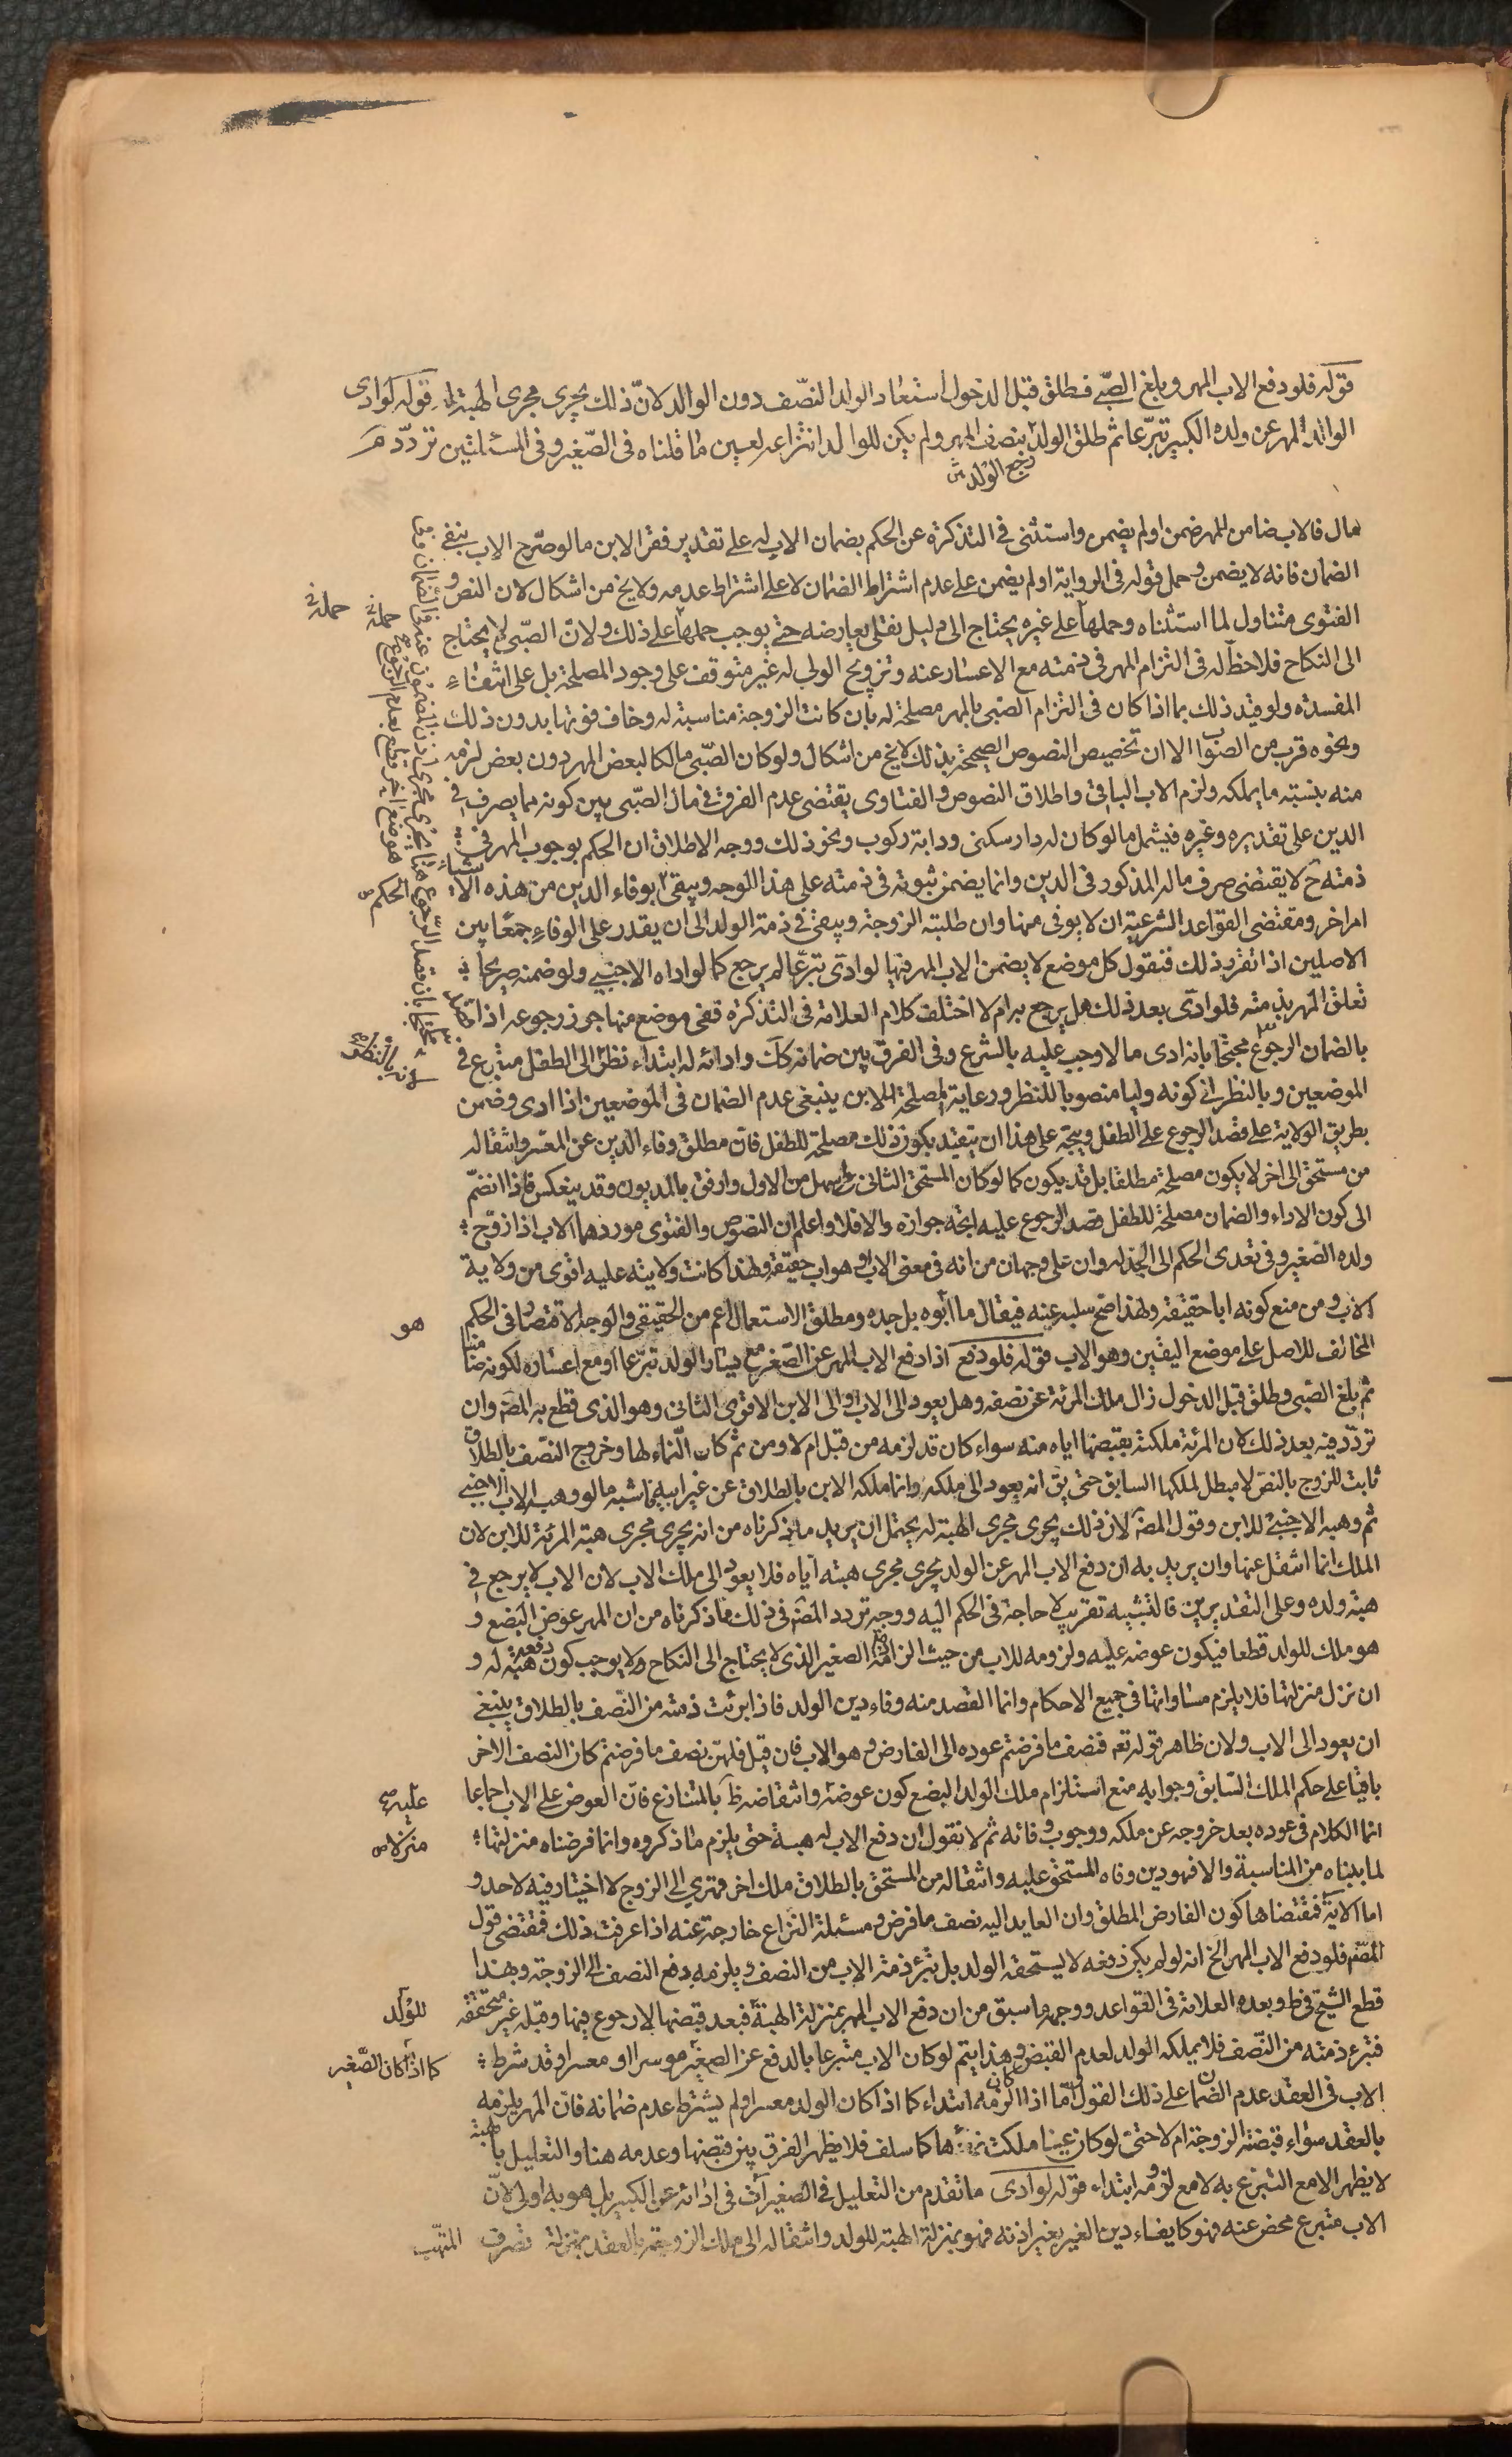 قوله فلو دفع الاب المهر وبلغ الصبى فطلق قبل الدخول استعاد الولد النصف دون الوالد لان ذلك يجرى مجرى الهبة له قوله لو ادى
الوالد المهر عن ولده الكبير تبرعا ثم طلق الولد بنصف المهر ولم يكن للوالد انتزاعه لعين ما قلناه فى الصغير وفى المسئلتين تردد
رجع الولد
مال فالاب ضامن للمهر ضمن او لم يضمن واستثنى فى التذكرة عن الحكم بضمان الاب له على تقدير فقر الابن ما لو صرح الاب بنفى
الضمان فانه لا يضمن وحمل قوله فى الرواية او لم يضمن على عدم اشتراط الضمان لا على اشتراط عدمه ولا يخ من اشكال لان النص و
الفتوى متناول لما استثناه وحملها على غيره يحتاج الى دليل نقلى يعارضه حتى يوجب حملها على ذلك ولان الصبى لا يحتاج
الى النكاح فلا حظ له فى التزام المهر فى ذمته مع الاعسار عنه وتزويج الولى له غير متوقف على وجود المصلحة بل على انتفاء
المفسدة ولو قيد ذلك بما اذا كان فى التزام الصبى بالمهر مصلحة له بان كانت الزوجة مناسبة له وخاف فوتها بدون ذلك
ونحوه قرب من الصواب الا ان تخصيص النصوص الصحيحة بذلك لا يخ من اشكال ولو كان الصبى مالكا لبعض المهر دون بعض لزمه
منه بنسبة ما يملكه ولزم الاب الباقى واطلاق النصوص والفتاوى يقتضى عدم الفرق فى مال الصبى بين كونه مما يصرف فى
الدين على تقديره وغيره فيشمل ما لو كان له دار سكنى ودابة ركوب ونحو ذلك ووجه الاطلاق ان الحكم بوجوب المهر فى
ذمته ح لا يقتضى صرف ماله المذكور فى الدين وانما يضمن ثبوته فى ذمته على هذا الوجه ويبقى بوفاء الدين من هذه الاشياء
امر اخر ومقتضى القواعد الشرعية ان لا يوفى منها وان طلبته الزوجة ويبقى فى ذمة الولد الى ان يقدر على الوفاء جمعا بين
الاصلين اذا تقرر ذلك فنقول كل موضع لا يضمن الاب المهر فيها لو ادى تبرعا لم يرجع كما لو اداه الاجنبى ولو ضمنه صريحا
تعلق المهر بذمته فلو ادى بعد ذلك هل يرجع به ام لا اختلف كلام العلامة فى التذكرة ففى موضع منها جوز رجوعه اذا قصد
بالضمان الرجوع محتجا بانه ادى مالا وجب عليه بالشرع وفى الفرق بين ضمانه كك وادائه له ابتداء نظر الى الطفل متبرع فى
الموضعين وبالنظر الى كونه وليا منصوبا للنظر ورعاية لمصلحة الابن ينبغى عدم الضمان فى الموضعين اذا ادى وضمن
بطريق الولاية على قصد الرجوع على الطفل ويتجه على هذا ان يتقيد بكون ذلك مصلحة للطفل فان مطلق وفاء الدين عن المعسر وانتقاله
من مستحق الى اخر لا يكون مصلحة مطلقا بل قد يكون كما لو كان المستحق الثانى اسهل من الاول وارفق بالمديون وقد ينعكس فاذا انضم
الى كون الاداء والضمان مصلحة للطفل قصد الرجوع عليه اتجه جوازه والا فلا واعلم ان النصوص والفتوى موردهما الاب اذا زوج
ولده الصغير وفى تعدى الحكم الى الجد له وان على وجهان من انه فى معنى الاب او هو اب حقيقة ولهذا كانت ولايته عليه اقوى من ولاية
الاب ومن منع كونه ابا حقيقة ولهذا صح سلبه عنه فيقال ما ابوه بل جده ومطلق الاستعمال اعم من الحقيقى والوجه الاقتصار فى الحكم
المخالف للاصل على موضع اليقين وهو الاب قوله فلو دفع اذا دفع الاب المهر عن الصغير مع يسار الولد تبرعا او مع اعساره لكونه ضامنا
ثم بلغ الصبى وطلق قبل الدخول زال ملك المرئة عن نصفه وهل يعود الى الاب او الى الابن الاقوى الثانى وهو الذى قطع به المصَ وان
تردد فيه بعد ذلك لان المرئة ملكته بقبضها اياه منه سواء كان قد لزمه من قبل ام لا ومن ثم كان النماء لها وخروج النصف بالطلاق
ثابت للزوج بالنص لا مبطل لملكها السابق حتى يق انه يعود الى ملكه وانما ملكه الابن بالطلاق عن غير ابيه فاشبه ما لو وهبه الاب الاجنبى
ثم وهبه الاجنبى للابن وقول المصَ لان ذلك يجرى مجرى الهبة له يحتمل ان يريد ما ذكرناه من انه يجرى مجرى هبة المرئة للابن لان
الملك انما انتقل عنها وان يريد به ان دفع الاب المهر عن الولد يجرى مجرى هبته اياه فلا يعود الى ملك الاب لان الاب لا يرجع فى
هبة ولده وعلى التقديرين فالتشبيه تقريب لا حاجة فى الحكم اليه ووجه تردد المصَ فى ذلك ما ذكرناه من ان المهر عوض البضع و
هو ملك للولد قطعا فيكون عوضه عليه ولزومه للاب من حيث الزامه الصغير الذى لا يحتاج الى النكاح ولا يوجب كون دفعه هبة له و
ان نزل منزلتها فلا يلزم مساواتها فى جميع الاحكام وانما القصد منه وفاء دين الولد فاذا برئت ذمته من النصف بالطلاق ينبغى
ان يعود الى الاب ولان ظاهر قوله تعه فنصف ما فرضتم عوده الى الفارض وهو الاب فان قيل فلهن نصف ما فرضتم كان النصف الاخر
باقيا على حكم الملك السابق وجوابه منع استلزام ملك الولد البضع كون عوضه وانتقاضه ظَ بالمتنازع فان العوض على الاب اجماعا
انما الكلام فى عوده بعد خروجه عن ملكه ووجوب وفائه ثم لا نقول ان دفع الاب له هبة حتى يلزم ما ذكروه وانما فرضناه منزلتها
لما بيناه من المناسبة والا فهو دين وفاه المستحق عليه وانتقاله من المستحق بالطلاق ملك اخر قهرى الى الزوج لا اختيار فيه لاحد و
اما الاية فمقتضاها كون الفارض المطلق وان العايد اليه نصف ما فرض ومسئلة النزاع خارجة عنه اذا عرفت ذلك فمقتضى قول
المصَ فلو دفع الاب المهر الخ انه لو لم يكن دفعه لا يستحقه الولد بل تبرء ذمة الاب من النصف ويلزمه دفع النصف الى الزوجة وبهذا
قطع الشيخ فى ط وبعده العلامة فى القواعد ووجهه ما سبق من ان دفع الاب المهر بمنزلة الهبة فبعد قبضها لا رجوع فيها وقبله غير متحققه
فتبرء ذمته من النصف فلا يملكه الولد لعدم القبض وهذا يتم لو كان الاب متبرعا بالدفع عن الصغير موسرا او معسرا وقد شرط
الاب فى العقد عدم الضمان على ذلك القول اما اذا كان لزمه ابتداء كما اذا كان الولد معسرا ولم يشترط عدم ضمانه فان المهر يلزمه
بالعقد سواء قبضته الزوجة ام لا حتى لو كان عينا ملكت نمائها كما سلف فلا يظهر الفرق بين قبضها وعدمه هنا والتعليل بالهبة
لا يظهر الا مع التبرع به لا مع لزومه ابتداء قوله لو ادى ما تقدم من التعليل فى الصغير آت فى ادائه عن الكبير بل هو به اولى لان
الاب متبرع محض عنه فهو كايفاء دين الغير بغير اذنه فهو بمنزلة الهبة للولد وانتقاله الى ملك الزوجة بالعقد بمنزلة تصرف المتهب
حملة
حملة
الحكم
لانه بالنظر
هو
عليه
منزلا
للولد
كما اذا كان الصغير